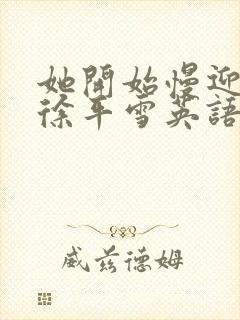 她開始慢迎
徐平雪英語
威兹德姆